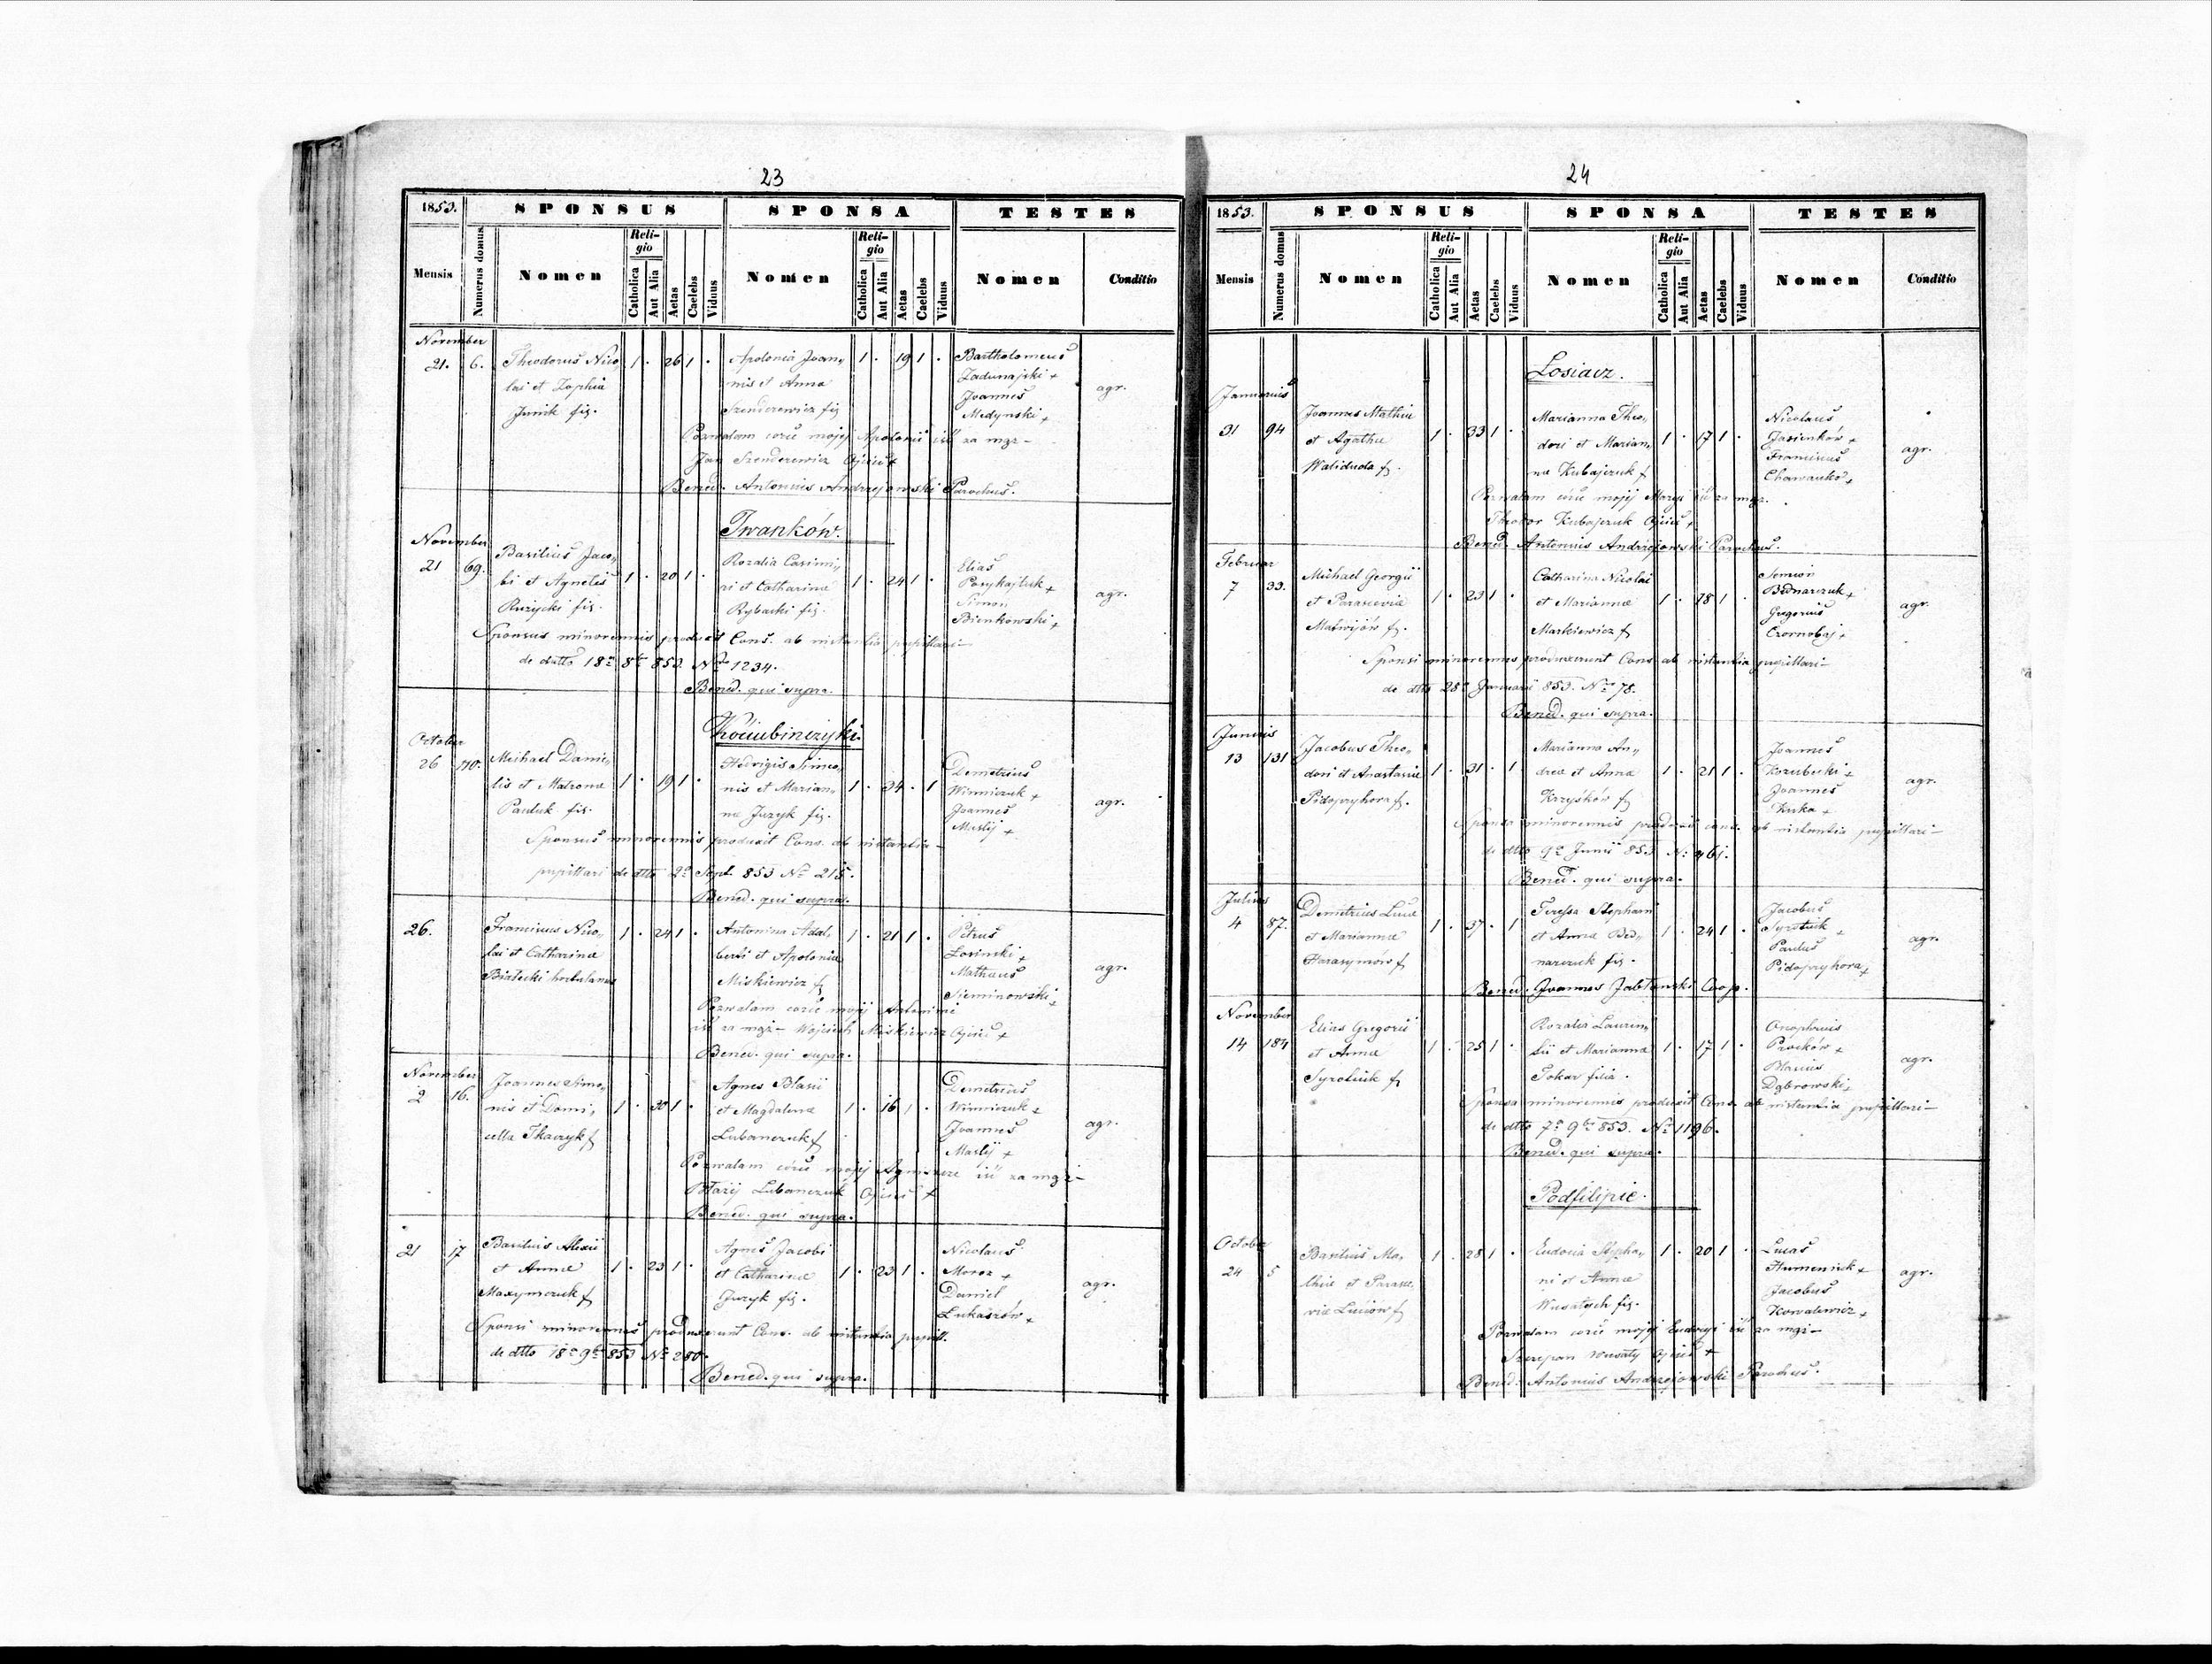 23
1853.
SPONSUS
SPONSA
TESTES
Mensis
Numerus domus
Nomen
Religio
Catholica
Aut Alia
Aetas
Caelebs
Viduus
Nomen
Religio
Catholica
Aut Alia
Aetas
Caelebs
Viduus
Nomen
Conditio
November
21. 6. Theodorus Nico„ 1 . 26 1 . Apolonia Joan„ 1 . 19 1 . Bartholomeus
lai et Zophia nis et Anna Zadunajski +
Junik fig. Szenderewicz fig Joannes
Medynski +
agr.
Pozwalam córce mojej Apolonii iść za mąż -
Jan Szenderewicz Ojciec +
Bened. Antonius Andrzejowski Parochus.
Iwanków.
November
21 69. Basilius Jaco„ 1 . 20 1 . Rozalia Casimi„ 1 . 24 1 . Elias
bi et Agnetis ri et Catharina
Ruzycki fig. Rybacki fig. Simon
Bienkowski +
agr.
Sponsus minorennis produxit Cons. ab instantia pupillari -
de datto 18a 8br 853. No 1234.
Bened. qui supra.
October
26 110. Michael Dani„ 1 . 19 1 . Hedvigis Simeo„ 1 . 34 . 1 Demetrius
lis et Matrona nis et Marian„ Winniczuk +
Pauluk fig. na Juzyk fig. Joannes
Maslij +
agr.
Sponsus minorennis produxit Cons. ab instantia -
pupillari de dtto 2a Sept. 853 No 215.
Bened. qui supra.
26. Franciscus Nico„ 1 . 24 1 . Antonina Adal„ 1 . 21 1 . Petrus
lai et Catharina berti et Apolonia Losinski +
Bialecki hortulanus Miskiewicz f Matheus
Sieminowski +
agr.
Pozwalam córce mojej Antonini
iść za mąż - Wojciech Miskiewicz Ojciec +
Bened. qui supra.
November
2 16. Joannes Simo„ 1 . 30 1 . Agnes Blasii 1 . 16 1 . Demetrius
nis et Domi„ et Magdalena Winniczuk +
cella Tkaczyk f Lubanczuk f Joannes
Maslij +
agr.
Pozwalam córce mojej Agnieszce iść za mąż -
Błażij Lubanczuk Ojciec +
Bened. qui supra.
21 17 Basilius Alexii 1 . 23 1 . Agnes Jacobi 1 . 23 1 . Nicolaus
et Anna et Catharina Moroz +
Maxymczuk f Juzyk fig. Daniel
Lukaszów +
agr.
Sponsi minorennes produxerunt Cons. ab instantia pupill.
de dtto 18a 9br 853 No 280.
Bened. qui supra.
24
1853.
SPONSUS
SPONSA
TESTES
Mensis
Numerus domus
Nomen
Religio
Catholica
Aut Alia
Aetas
Caelebs
Viduus
Nomen
Religio
Catholica
Aut Alia
Aetas
Caelebs
Viduus
Nomen
Conditio
Losiacz.
Januarius
31 94 Joannes Mathei 1 . 33 1 . Marianna Theo„ 1 . 17 1 . Nicolaus
et Agatha dori et Marian„ Jasienków +
Waliduda f. na Kubajczuk f Franciscus
agr.
Pozwalam córce mojej Maryi iść za mąż.
Theodor Kubajczuk Ojciec +
Bened. Antonius Andrzejowski Parochus.
Februar
7 33. Michael Georgii 1 . 23 1 . Catharina Nicolai 1 . 18 1 . Semion
et Parascevia et Marianna Bednarczuk +
Matwijów f. Markiewicz f Gregorius
Czornobaj +
agr.
Sponsi minorennes produxerunt Cons. ab instantia pupillari -
de dtto 25a Januarii 853. No 78.
Bened. qui supra.
Junius
13 131 Jacobus Theo„ 1 . 31 . 1 Marianna An„ 1 . 21 1 . Joannes
dori et Anastasia dreae et Anna Kozubecki +
Pidopryhora f. Krzyśków f Joannes
Kuka +
agr.
Sponsa minorennis produxit cons. ab instantia pupillari -
de dtto 9a Junii 853 No 461.
Bened. qui supra.
Julius
4 87. Demetrius Lucae 1 . 37 . 1 Teressa Stephani 1 . 24 1 . Jacobus
et Marianna et Anna Bed„ Syrotiuk +
Harasymów f narczuk fig. Paulus
Pidopryhora +
agr.
Bened. Joannes Jabłonski Coop.
November
14 184 Elias Gregorii 1 . 25 1 . Rozalia Lauren„ 1 . 17 1 . Onophrius
et Anna tii et Marianna Procków +
Syrotiuk f Tokar filia. Blasius
Dąbrowski +
agr.
Sponsa minorennis produxit Cons. ab instantia pupillari -
de dtto 7a 9br 853. No 1196.
Bened. qui supra.
Podfilipie.
October
24 5 Basilius Ma„ 1 . 28 1 . Eudocia Stepha„ 1 . 20 1 . Lucas
thei et Parasce„ ni et Anna Humeniuk +
via Luciów f Jacobus
Kowalewicz +
agr.
Pozwalam córce mojej Eudocyi iść za mąż -
Szczepan Wusaty Ojciec +
Bened. Antonius Andrzejowski Parochus.